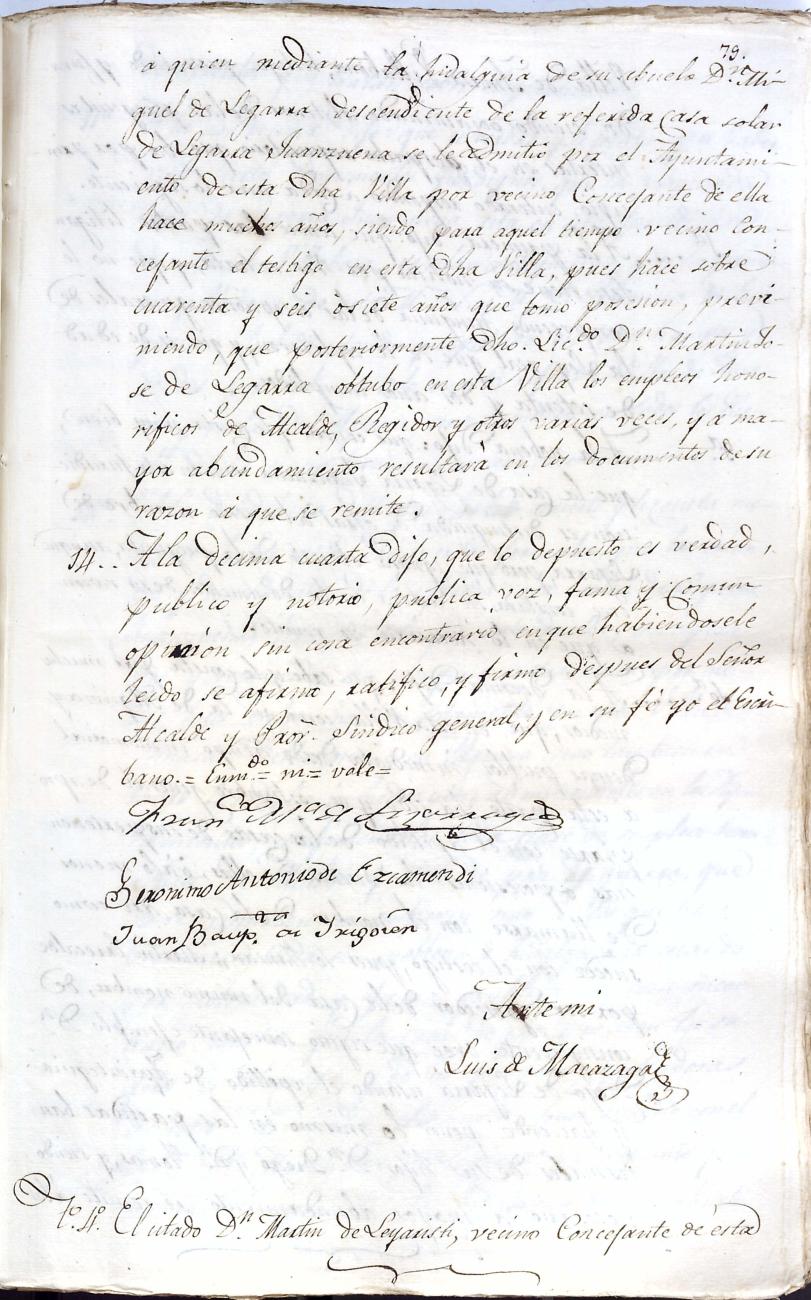 79.
á quien mediante la hidalguia de su abuelo Dn. Mi-
guel de Legarra descendiente de la referida casa solar
de Legarra Juanzuena se le admitió por el Ayuntami-
ento de esta dha Villa por vecino Concejante de ella
hace muchos años, siendo para aquel tiempo vecino Con-
cejante el testigo en esta dha Villa, pues hace sobre
cuarenta y seis ò siete años que tomó posesion, previ-
niendo, que posteriormente dho. Licdo. Dn. Martin Jo-
se de Legarra obtubo en esta Villa los empleos hono-
rificos de Alcalde, Regidor y otros varias veces, y á ma-
yor abundamiento resultará en los documentos de su
razon á que se remite.
14.. A la decima cuarta dijo, que lo depuesto es verdad,
publico y notorio, publica voz, fama y Comun
opinion sin cosa encontrario, en que habiendosele
leido se afirmó, ratificó, y firmó despues del Señor
Alcalde y Pror. Sindico general, y en su fé yo el Escri-
bano.= Enmdo.= ni= vale=
Franco Ma. de Lizarraga
Geronimo Antonio de Ezcamendi
Juan Baupta. de Irigoien
Ante mi
Luis de Macazaga
To. 4o. El citado Dn. Martin de Leyaristi, vecino Concejante de esta